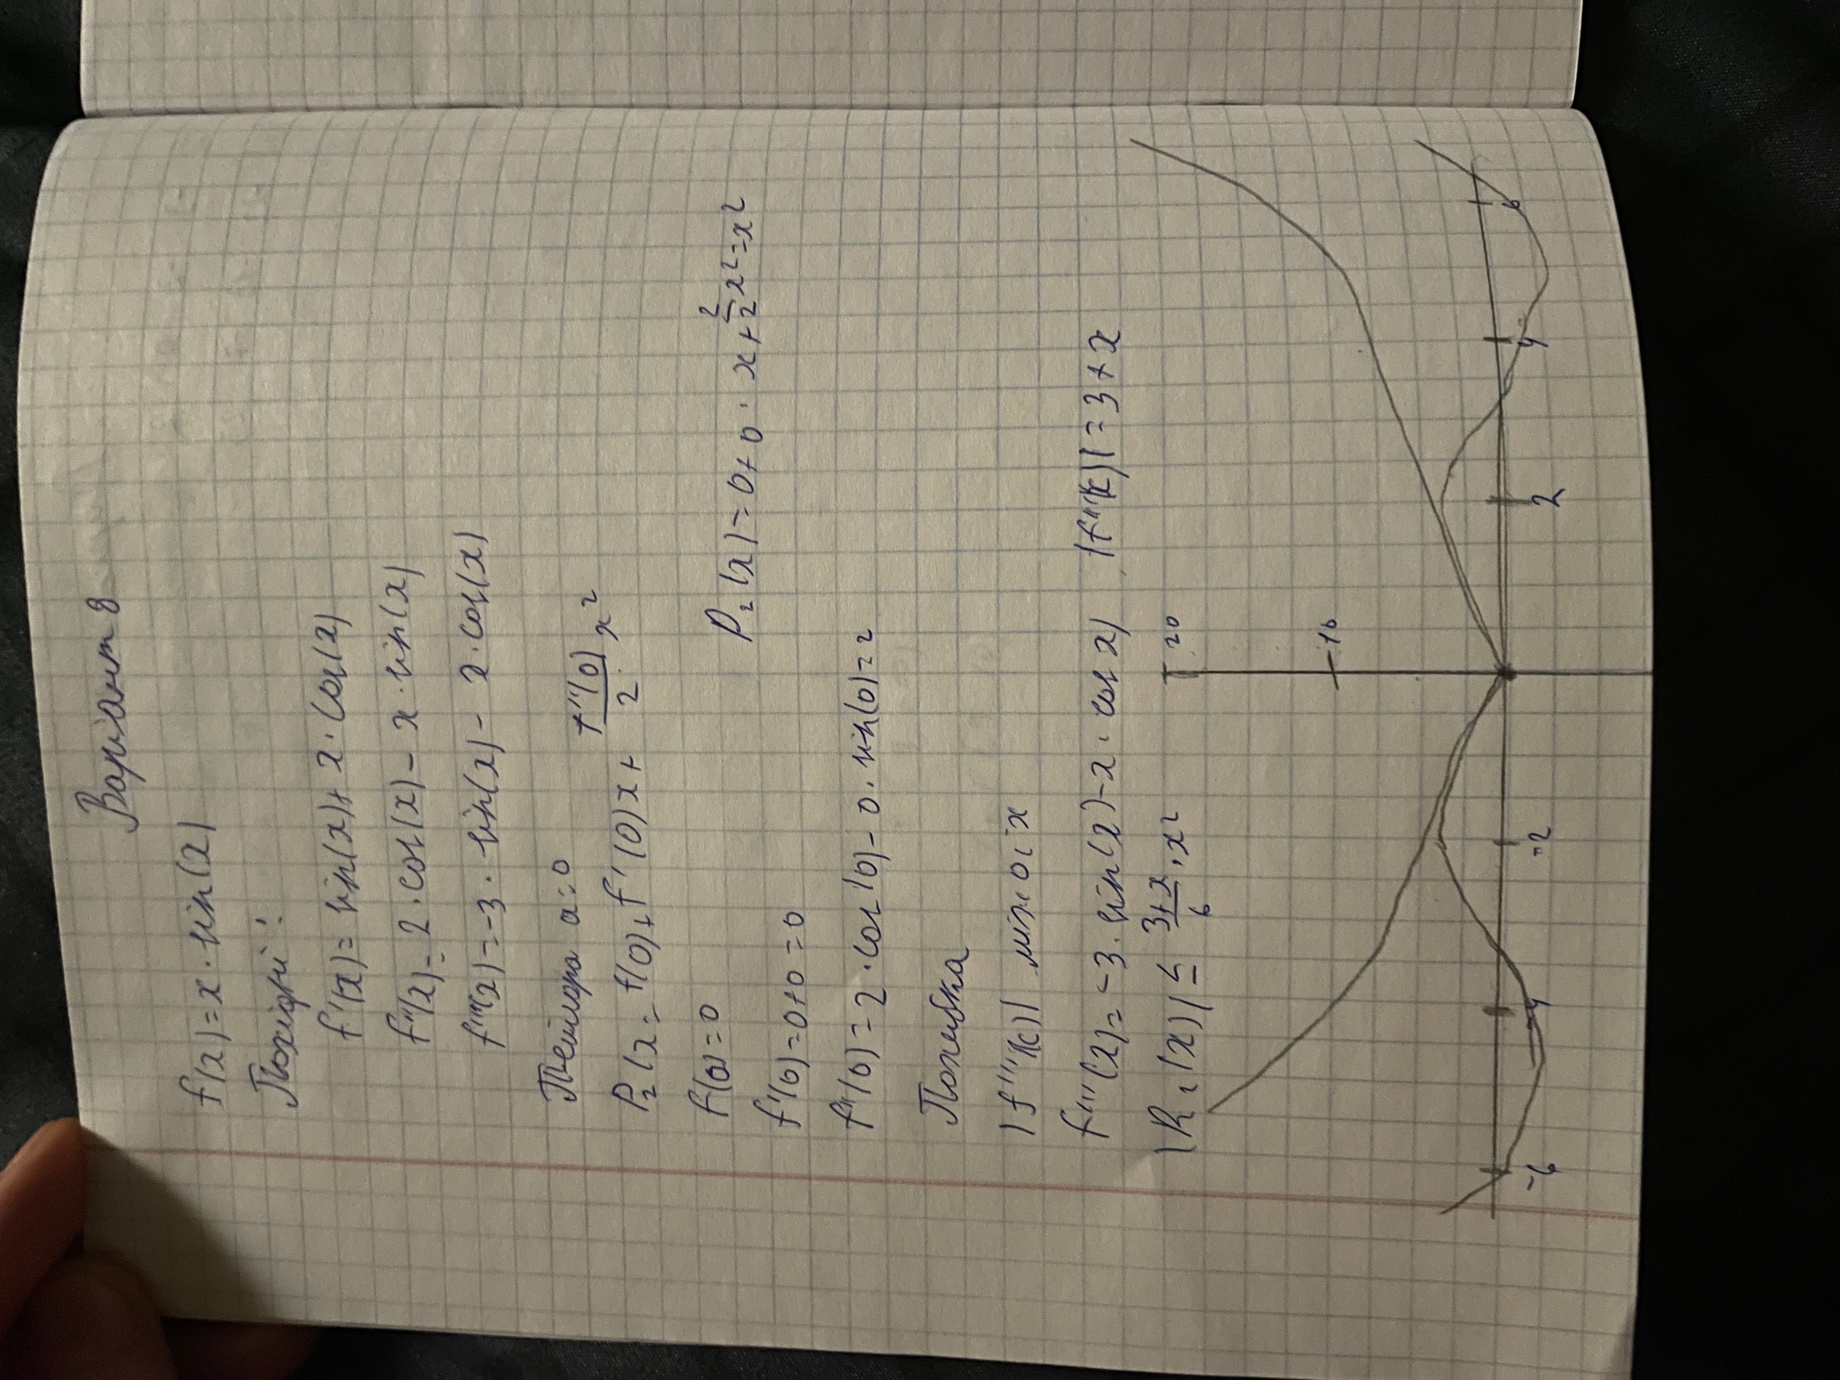 Варіант 8
f(x)=x·sin(x)
Похідні:
f'(x)=sin(x)+x·cos(x)
f''(x)=2·cos(x)-x·sin(x)
f'''(x)=-3·sin(x)-x·cos(x)
Тейлора a=0
P₂(x=f(0)+f'(0)x+ f''(0)/2 x²
f(0)=0
f'(0)=0+0=0
P₂(x)=0+0·x+2/2x²=x²
f''(0)=2·cos(0)-0·sin(0)=2
Похибка
|f'''(c)| між 0 і x
f'''(x)=-3·sin(x)-x·cos x) |f'''(x)|=3+x
|R₂(x)|≤ 3+x/6·x²
20
10
-6 -4 -2 2 4 6